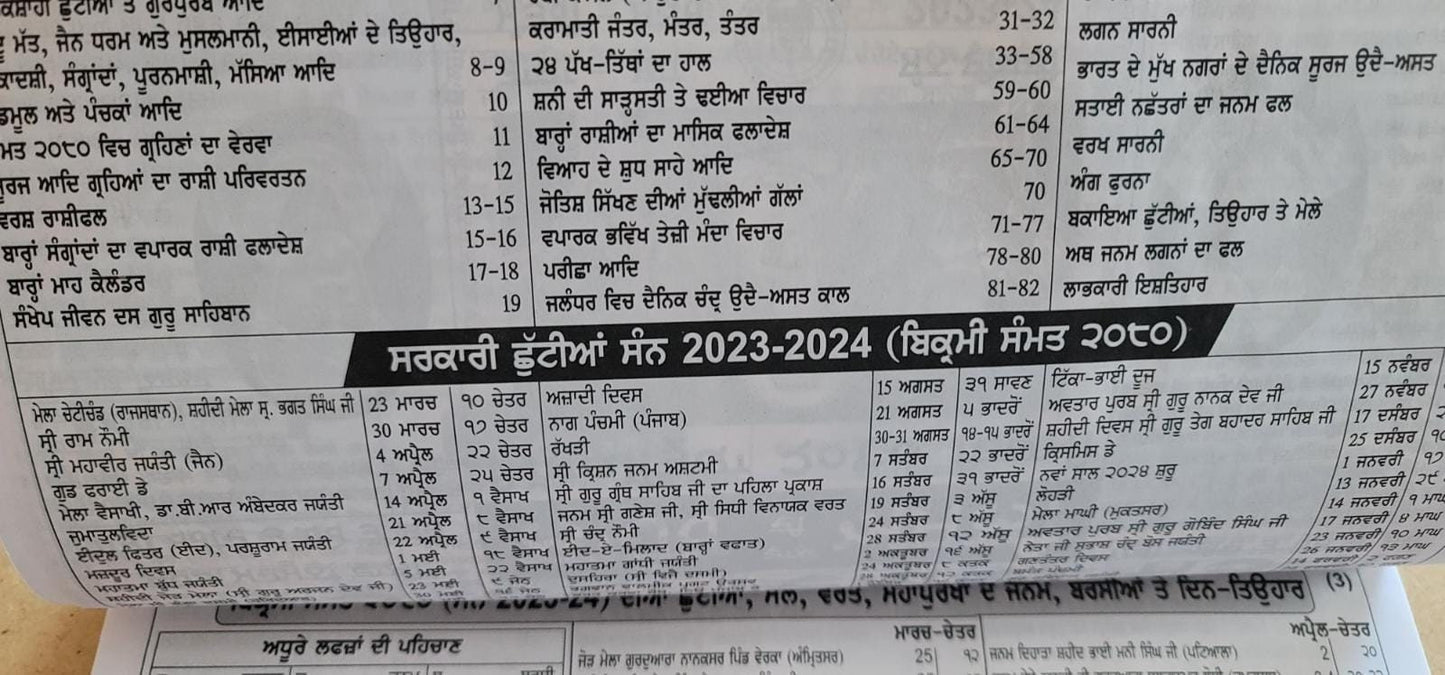 ਕਰਾਮਾਤੀ ਜੰਤਰ, ਮੰਤਰ, ਤੰਤਰ 31-32 ਲਗਨ ਸਾਰਨੀ
ਮੱਤ, ਜੈਨ ਧਰਮ ਅਤੇ ਮੁਸਲਮਾਨੀ, ਈਸਾਈਆਂ ਦੇ ਤਿਉਹਾਰ,
ਸੰਗ੍ਰਾਂਦਾਂ, ਪੂਰਨਮਾਸ਼ੀ, ਮੱਸਿਆ ਆਦਿ 8-9 ੨੪ ਪੱਖ-ਤਿੱਥਾਂ ਦਾ ਹਾਲ 33-58 ਭਾਰਤ ਦੇ ਮੁੱਖ ਨਗਰਾਂ ਦੇ ਦੈਨਿਕ ਸੂਰਜ ਉਦੈ-ਅਸਤ
ਅਤੇ ਪੰਚਕਾਂ ਆਦਿ 10 ਸ਼ਨੀ ਦੀ ਸਾੜ੍ਹਸਤੀ ਤੇ ਢਈਆ ਵਿਚਾਰ 59-60 ਸਤਾਈ ਨਛੱਤਰਾਂ ਦਾ ਜਨਮ ਫਲ
੨੦੮੦ ਵਿਚ ਗ੍ਰਹਿਣਾਂ ਦਾ ਵੇਰਵਾ 11 ਬਾਰ੍ਹਾਂ ਰਾਸ਼ੀਆਂ ਦਾ ਮਾਸਿਕ ਫਲਾਦੇਸ਼ 61-64 ਵਰਖ ਸਾਰਨੀ
ਆਦਿ ਗ੍ਰਹਿਆਂ ਦਾ ਰਾਸ਼ੀ ਪਰਿਵਰਤਨ 12 ਵਿਆਹ ਦੇ ਸ਼ੁਧ ਸਾਹੇ ਆਦਿ 65-70 ਅੰਗ ਫੁਰਨਾ
ਵਰਸ਼ ਰਾਸ਼ੀਫਲ 13-15 ਜੋਤਿਸ਼ ਸਿੱਖਣ ਦੀਆਂ ਮੁੱਢਲੀਆਂ ਗੱਲਾਂ 70 ਬਕਾਇਆ ਛੁੱਟੀਆਂ, ਤਿਉਹਾਰ ਤੇ ਮੇਲੇ
ਬਾਰ੍ਹਾਂ ਸੰਗ੍ਰਾਂਦਾਂ ਦਾ ਵਪਾਰਕ ਰਾਸ਼ੀ ਫਲਾਦੇਸ਼ 15-16 ਵਪਾਰਕ ਭਵਿੱਖ ਤੇਜ਼ੀ ਮੰਦਾ ਵਿਚਾਰ 71-77 ਅਥ ਜਨਮ ਲਗਨਾਂ ਦਾ ਫਲ
ਬਾਰ੍ਹਾਂ ਮਾਹ ਕੈਲੰਡਰ 17-18 ਪਰੀਛਾ ਆਦਿ 78-80 ਲਾਭਕਾਰੀ ਇਸ਼ਤਿਹਾਰ
ਸੰਖੇਪ ਜੀਵਨ ਦਸ ਗੁਰੂ ਸਾਹਿਬਾਨ 19 ਜਲੰਧਰ ਵਿਚ ਦੈਨਿਕ ਚੰਦ੍ਰ ਉਦੈ-ਅਸਤ ਕਾਲ 81-82
ਸਰਕਾਰੀ ਛੁੱਟੀਆਂ ਸੰਨ 2023-2024 (ਬਿਕ੍ਰਮੀ ਸੰਮਤ ੨੦੮੦)
ਮੇਲਾ ਚੇਟੀਚੰਡ (ਰਾਜਸਥਾਨ), ਸ਼ਹੀਦੀ ਮੇਲਾ ਸ੍ਰ. ਭਗਤ ਸਿੰਘ ਜੀ 23 ਮਾਰਚ ੧੦ ਚੇਤਰ ਅਜ਼ਾਦੀ ਦਿਵਸ 15 ਅਗਸਤ ੩੧ ਸਾਵਣ ਟਿੱਕਾ-ਭਾਈ ਦੂਜ 15 ਨਵੰਬਰ
ਸ੍ਰੀ ਰਾਮ ਨੌਮੀ 30 ਮਾਰਚ ੧੭ ਚੇਤਰ ਨਾਗ ਪੰਚਮੀ (ਪੰਜਾਬ) 21 ਅਗਸਤ ੫ ਭਾਦਰੋਂ ਅਵਤਾਰ ਪੁਰਬ ਸ੍ਰੀ ਗੁਰੂ ਨਾਨਕ ਦੇਵ ਜੀ 27 ਨਵੰਬਰ
ਸ੍ਰੀ ਮਹਾਵੀਰ ਜਯੰਤੀ (ਜੈਨ) 4 ਅਪ੍ਰੈਲ ੨੨ ਚੇਤਰ ਰੱਖੜੀ 30-31 ਅਗਸਤ ੧੪-੧੫ ਭਾਦਰੋਂ ਸ਼ਹੀਦੀ ਦਿਵਸ ਸ੍ਰੀ ਗੁਰੂ ਤੇਗ ਬਹਾਦਰ ਸਾਹਿਬ ਜੀ 17 ਦਸੰਬਰ
ਗੁਡ ਫਰਾਈ ਡੇ 7 ਅਪ੍ਰੈਲ ੨੫ ਚੇਤਰ ਸ੍ਰੀ ਕ੍ਰਿਸ਼ਨ ਜਨਮ ਅਸ਼ਟਮੀ 7 ਸਤੰਬਰ ੨੨ ਭਾਦਰੋਂ ਕ੍ਰਿਸਮਿਸ ਡੇ 25 ਦਸੰਬਰ
ਮੇਲਾ ਵੈਸਾਖੀ, ਡਾ.ਬੀ.ਆਰ ਅੰਬੇਦਕਰ ਜਯੰਤੀ 14 ਅਪ੍ਰੈਲ ੧ ਵੈਸਾਖ ਸ੍ਰੀ ਗੁਰੂ ਗ੍ਰੰਥ ਸਾਹਿਬ ਜੀ ਦਾ ਪਹਿਲਾ ਪ੍ਰਕਾਸ਼ 16 ਸਤੰਬਰ ੩੧ ਭਾਦਰੋਂ ਨਵਾਂ ਸਾਲ ੨੦੨੪ ਸ਼ੁਰੂ 1 ਜਨਵਰੀ
ਜੁਮਾਤੁਲਵਿਦਾ 21 ਅਪ੍ਰੈਲ ੮ ਵੈਸਾਖ ਜਨਮ ਸ੍ਰੀ ਗਣੇਸ਼ ਜੀ, ਸ੍ਰੀ ਸਿਧੀ ਵਿਨਾਯਕ ਵਰਤ 19 ਸਤੰਬਰ ੩ ਅੱਸੂ ਲੋਹੜੀ 13 ਜਨਵਰੀ
ਈਦੁਲ ਫਿਤਰ (ਈਦ), ਪਰਸ਼ੂਰਾਮ ਜਯੰਤੀ 22 ਅਪ੍ਰੈਲ ੯ ਵੈਸਾਖ ਸ੍ਰੀ ਚੰਦ੍ਰ ਨੌਮੀ 24 ਸਤੰਬਰ ੮ ਅੱਸੂ ਮੇਲਾ ਮਾਘੀ (ਮੁਕਤਸਰ) 14 ਜਨਵਰੀ ੧ ਮਾਘ
ਮਜ਼ਦੂਰ ਦਿਵਸ 1 ਮਈ ੧੮ ਵੈਸਾਖ ਈਦ-ਏ-ਮਿਲਾਦ (ਬਾਰ੍ਹਾਂ ਵਫਾਤ) 28 ਸਤੰਬਰ ੧੨ ਅੱਸੂ ਅਵਤਾਰ ਪੁਰਬ ਸ੍ਰੀ ਗੁਰੂ ਗੋਬਿੰਦ ਸਿੰਘ ਜੀ 17 ਜਨਵਰੀ ੪ ਮਾਘ
ਮਹਾਤਮਾ ਬੁੱਧ ਜਯੰਤੀ 5 ਮਈ ੨੨ ਵੈਸਾਖ ਮਹਾਤਮਾ ਗਾਂਧੀ ਜਯੰਤੀ 2 ਅਕਤੂਬਰ ੧੬ ਅੱਸੂ ਨੇਤਾ ਜੀ ਸੁਭਾਸ਼ ਚੰਦ੍ਰ ਬੋਸ ਜਯੰਤੀ 23 ਜਨਵਰੀ ੧੦ ਮਾਘ
24 ਅਕਤੂਬਰ ੮ ਕਤਕ ਗਣਤੰਤਰ ਦਿਵਸ 26 ਜਨਵਰੀ ੧੩ ਮਾਘ
ਛੁੱਟੀਆਂ, ਮੇਲੇ, ਵਰਤ, ਮਹਾਪੁਰਖਾਂ ਦੇ ਜਨਮ, ਬਰਸੀਆਂ ਤੇ ਦਿਨ-ਤਿਉਹਾਰ (3)
ਅਧੂਰੇ ਲਫਜ਼ਾਂ ਦੀ ਪਹਿਚਾਣ ਮਾਰਚ-ਚੇਤਰ ਅਪ੍ਰੈਲ-ਚੇਤਰ
ਜੋੜ ਮੇਲਾ ਗੁਰਦੁਆਰਾ ਨਾਨਕਸਰ ਪਿੰਡ ਵੇਰਕਾ (ਅੰਮ੍ਰਿਤਸਰ) 25 ੧੨ ਜਨਮ ਦਿਹਾੜਾ ਸ਼ਹੀਦ ਭਾਈ ਮਨੀ ਸਿੰਘ ਜੀ (ਪਟਿਆਲਾ) 2 ੨੦